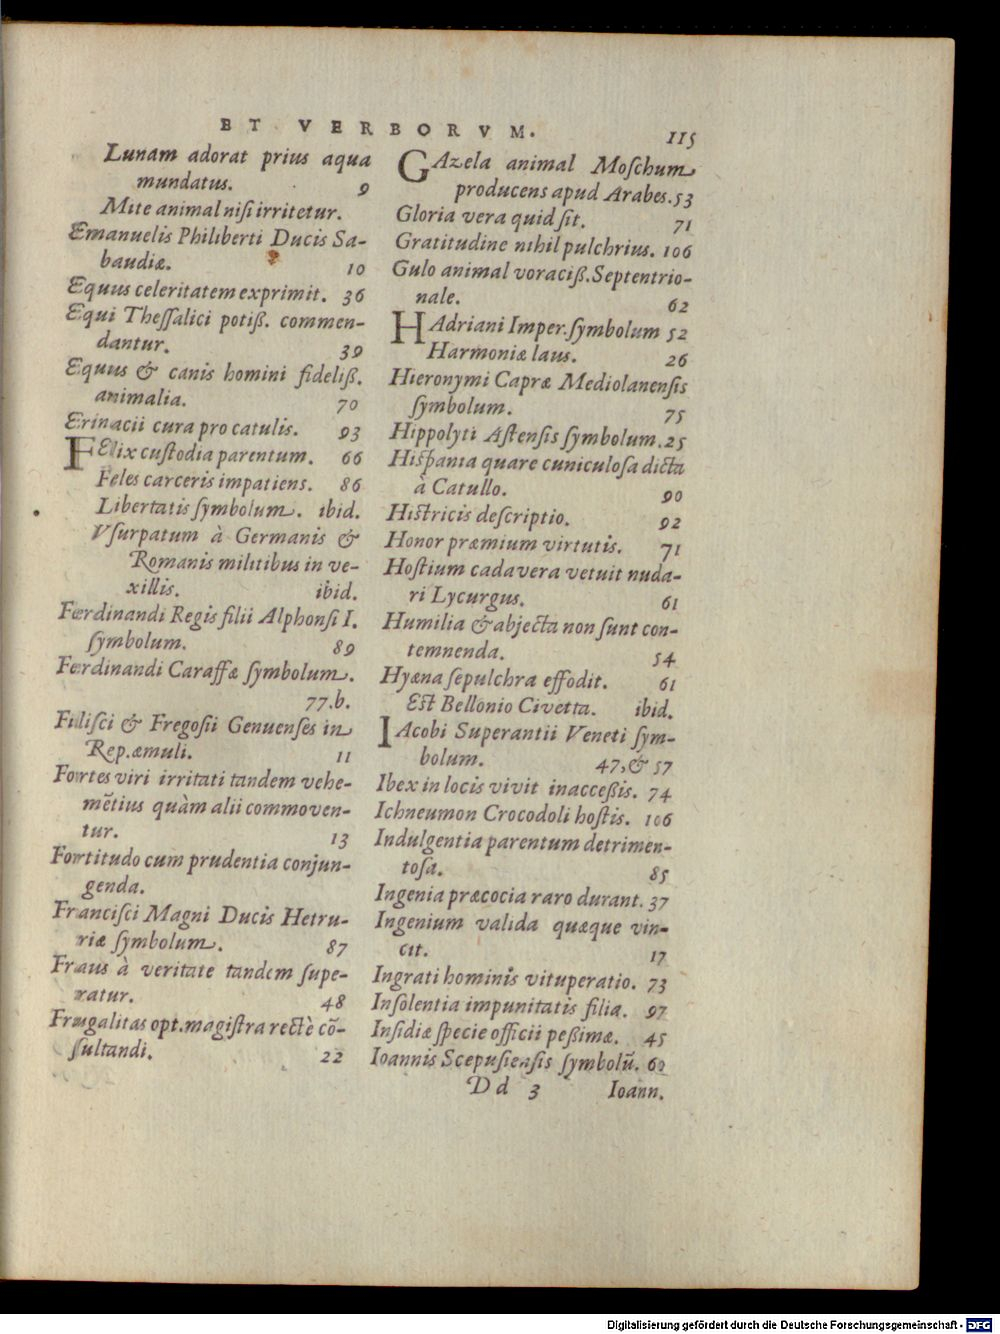 ET VERBORVM. 115
Lunam adorat prius aqua
mundatus. 9
Mite animal nisi irritetur.
Emanuelis Philiberti Ducis Sa-
baudiæ. 10
Equus celeritatem exprimit. 36
Equi Theſſalici potiß. commen-
dantur. 39
Equus & canis homini fideliß.
animalia. 70
Erinacii cura pro catulis. 93
FElix cuſtodia parentum. 66
Feles carceris impatiens. 86
Libertatis ſymbolum. ibid.
Vſurpatum à Germanis &
Romanis militibus in ve-
xillis. ibid.
Ferdinandi Regis filii Alphonſi I.
ſymbolum. 89
Ferdinandi Caraffæ ſymbolum.
77.b.
Fliſci & Fregoſii Genuenſes in
Rep. æmuli. 11
Fortes viri irritati tandem vehe-
mẽtius quàm alii commoven-
tur. 13
Fortitudo cum prudentia conjun-
genda.
Franciſci Magni Ducis Hetru-
riæ ſymbolum. 87
Fraus à veritate tandem ſupe-
ratur. 48
Frugalitas opt. magiſtra rectè cõ-
ſultandi. 22
GAzela animal Moſchum
producens apud Arabes. 53
Gloria vera quid ſit. 71
Gratitudine nihil pulchrius. 106
Gulo animal voraciß. Septentrio-
nale. 62
HAdriani Imper. ſymbolum 52
Harmoniæ laus. 26
Hieronymi Capræ Mediolanenſis
ſymbolum. 75
Hippolyti Aſtenſis ſymbolum. 25
Hiſpania quare cuniculoſa dicta
à Catullo. 90
Hiſtricis deſcriptio. 92
Honor præmium virtutis. 71
Hoſtium cadavera vetuit nuda-
ri Lycurgus. 61
Humilia & abjecta non ſunt con-
temnenda. 54
Hyæna ſepulchra effodit. 61
Eſt Bellonio Civetta. ibid.
IAcobi Superantii Veneti ſym-
bolum. 47, & 57
Ibex in locis vivit inacceßis. 74
Ichneumon Crocodoli hoſtis. 106
Indulgentia parentum detrimen-
toſa. 85
Ingenia præcocia raro durant. 37
Ingenium valida quæque vin-
cit. 17
Ingrati hominis vituperatio. 73
Inſolentia impunitatis filia. 97
Inſidiæ ſpecie officii peßimæ. 45
Ioannis Scepuſienſis ſymbolũ.
Dd 3 Ioann.
Digitalisierung gefördert durch die Deutsche Forschungsgemeinschaft - DFG